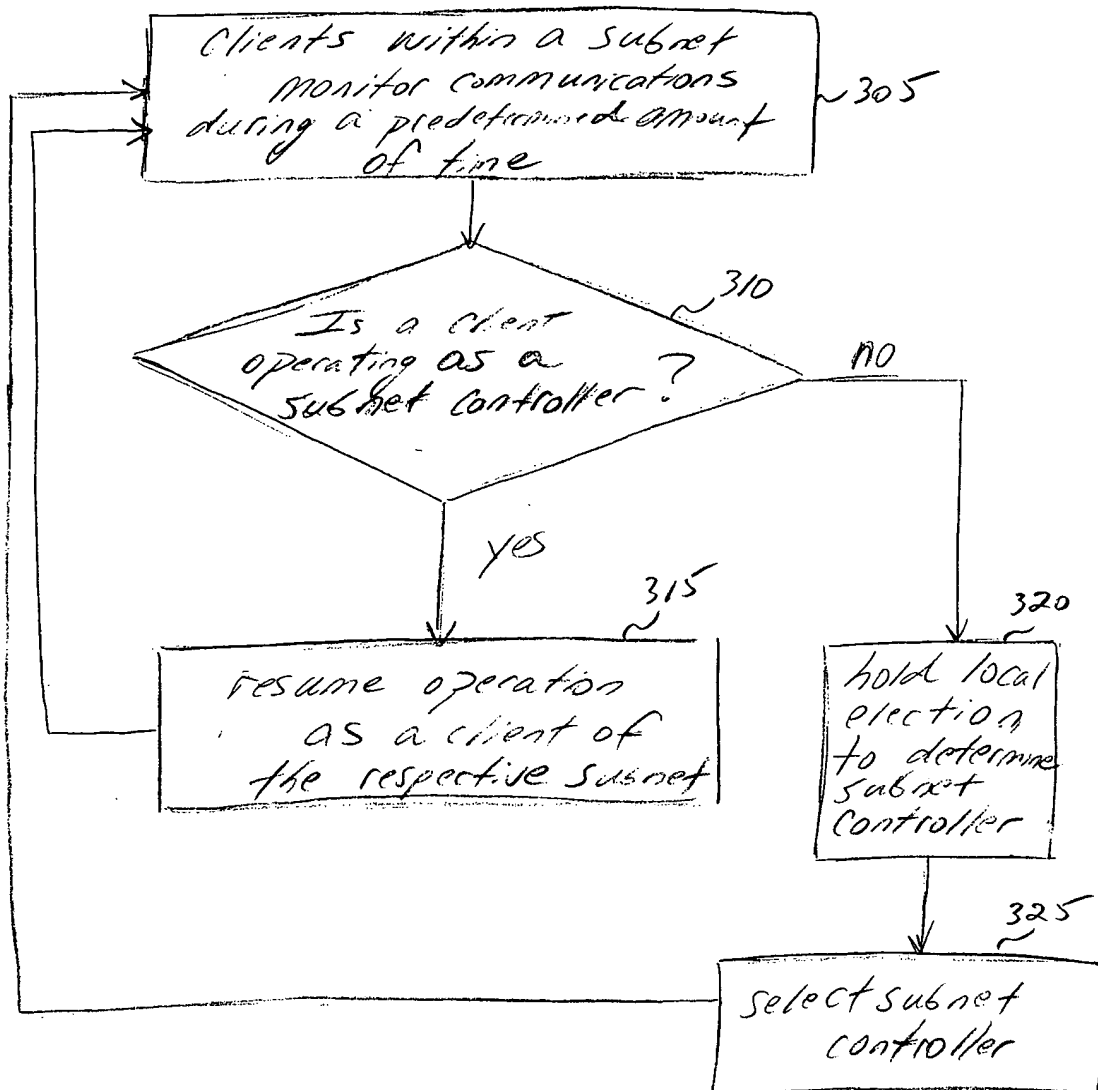 clients within a subnet
monitor communications
during a predetermined amount
of time
305
310
Is a client
operating as a
subnet controller?
no
yes
315
resume operation
as a client of
the respective subnet
320
hold local
election
to determine
subnet
controller
325
select subnet
controller